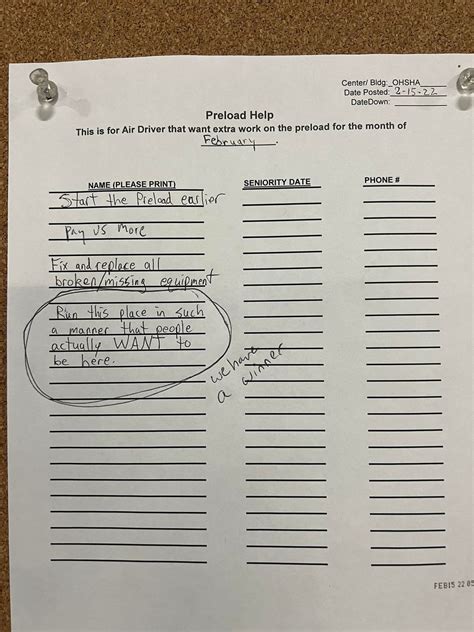 Center/ Bldg: OHSHA
Date Posted: 2-15-22
DateDown:
Preload Help
This is for Air Driver that want extra work on the preload for the month of
February.
NAME (PLEASE PRINT) SENIORITY DATE PHONE #
Start the Preload earlier
Pay us more
Fix and replace all
broken/missing equipment
Run this place in such
a manner that people
actually WANT to
be here.
we have
a winner
FEB15 22 05